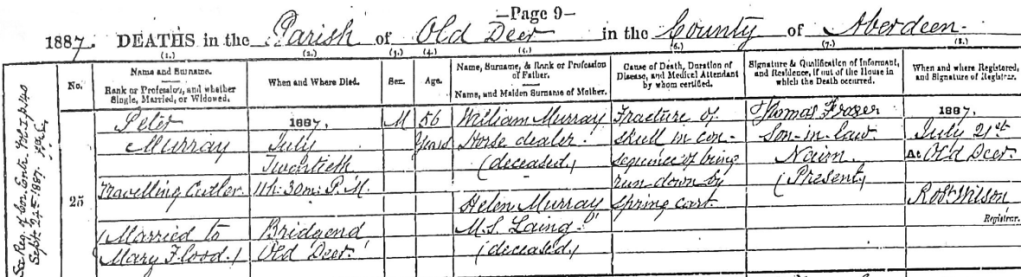 —Page 9—
1887. DEATHS in the Parish of Old Deer in the County of Aberdeen.
(1.) (2.) (3.) (4.) (5.) (6.) (7.) (8.)
No.
Name and Surname.
Rank or Profession, and whether Single, Married, or Widowed.
When and Where Died.
Sex.
Age.
Name, Surname, & Rank or Profession of Father.
Name, and Maiden Surname of Mother.
Cause of Death, Duration of Disease, and Medical Attendant by whom certified.
Signature & Qualification of Informant, and Residence, if out of the House in which the Death occurred.
When and where Registered, and Signature of Registrar.
25
Peter
Murray
Travelling Cutler
(Married to
Mary Flood.)
1887,
July
Twentieth
11h. 30m. P.M.
Bridgend
Old Deer
M
56
Years
William Murray
Horse dealer
(deceased)
Helen Murray
M.S. Laing
(deceased)
Fracture of
skull in con-
sequence of being
run down by
spring cart
Thomas Fraser
Son-in-law
Nairn
(Present)
1887.
July 21st
At Old Deer.
Robt Wilson
Registrar.
See Reg. of Cor. Entr. Vol. I, p. 40
Sept. 24th 1887.